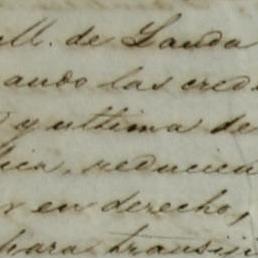 M. de Landa
ando las cred
y ultima de
ica, reducien
r en derecho,
para transiji